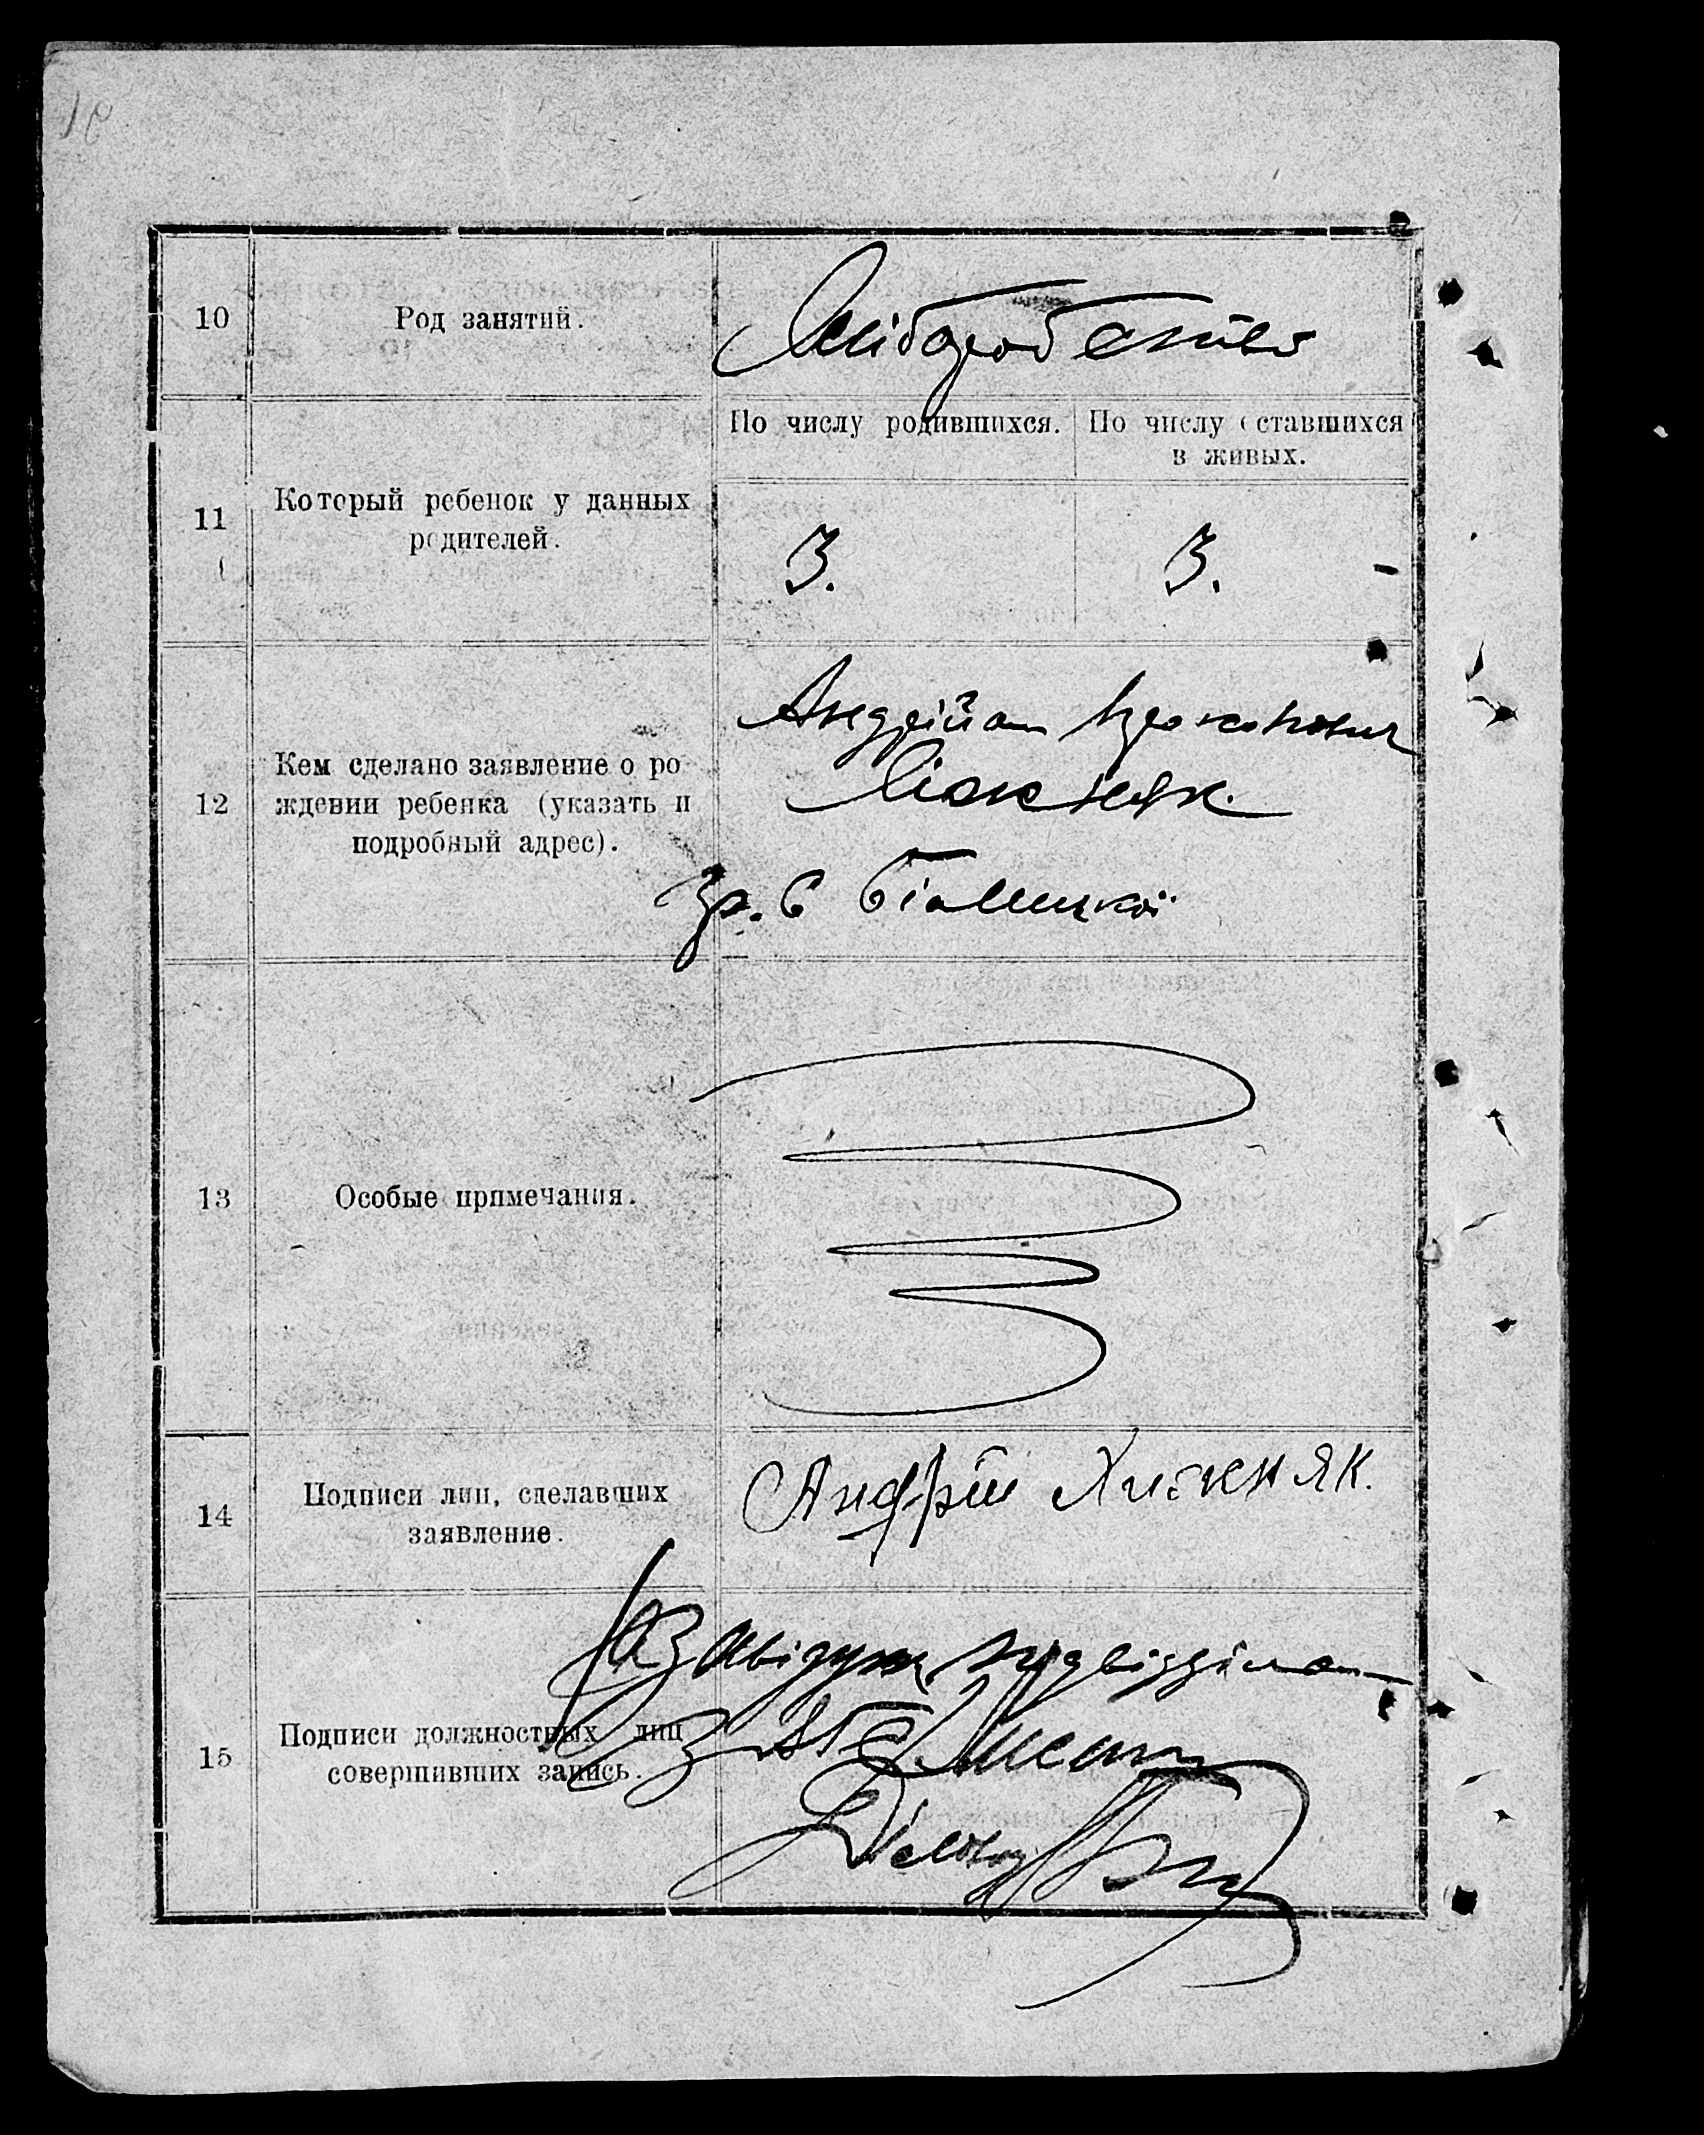 10
Род занятий.
Хліборобство
11
Который ребенок у данных
родителей.
По числу родившихся.
По числу оставшихся
в живых.
3.
3.
12
Кем сделано заявление о ро
ждении ребенка (указать и
подробный адрес).
Андрійом
Хижняк.
гр. с
13
Особые примечания.
14
Подписи лиц, сделавших
заявление.
Андрій Хижняк.
15
Подписи должностных лиц
совершивших запись.
Завідуюч. підвідділом